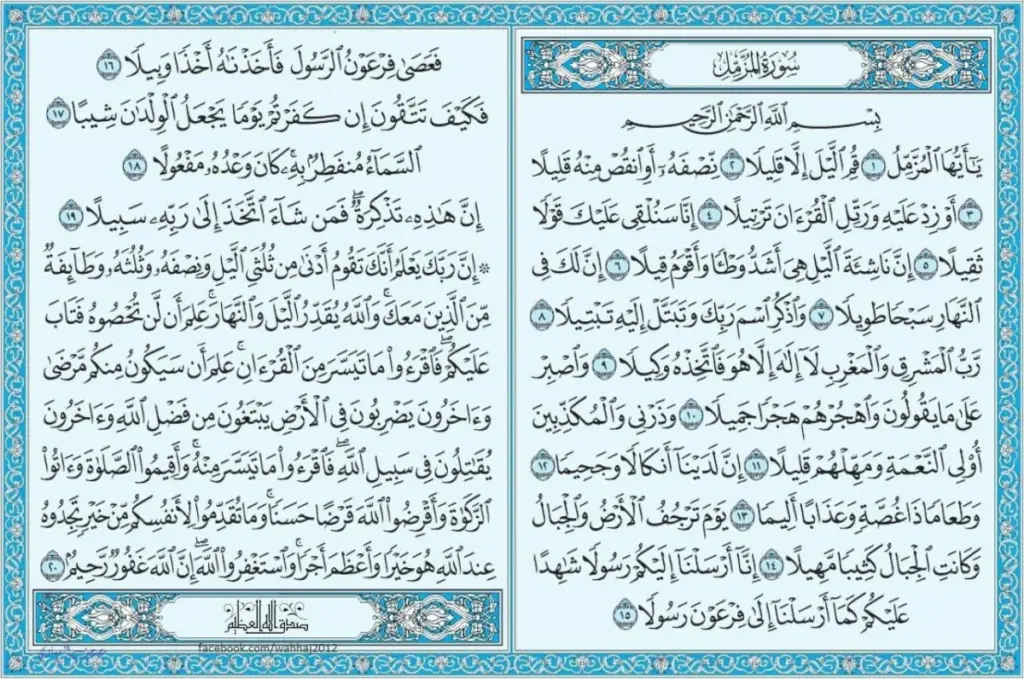 سُورَةُ المُزَّمِّل
بِسْمِ ٱللَّهِ ٱلرَّحْمَٰنِ ٱلرَّحِيمِ
يَٰٓأَيُّهَا ٱلْمُزَّمِّلُ ١ قُمِ ٱلَّيْلَ إِلَّا قَلِيلًا ٢ نِّصْفَهُۥٓ أَوِ ٱنقُصْ مِنْهُ قَلِيلًا
٣ أَوْ زِدْ عَلَيْهِ وَرَتِّلِ ٱلْقُرْءَانَ تَرْتِيلًا ٤ إِنَّا سَنُلْقِى عَلَيْكَ قَوْلًا
ثَقِيلًا ٥ إِنَّ نَاشِئَةَ ٱلَّيْلِ هِىَ أَشَدُّ وَطْـًٔا وَأَقْوَمُ قِيلًا ٦ إِنَّ لَكَ فِى
ٱلنَّهَارِ سَبْحًا طَوِيلًا ٧ وَٱذْكُرِ ٱسْمَ رَبِّكَ وَتَبَتَّلْ إِلَيْهِ تَبْتِيلًا ٨
رَّبُّ ٱلْمَشْرِقِ وَٱلْمَغْرِبِ لَآ إِلَٰهَ إِلَّا هُوَ فَٱتَّخِذْهُ وَكِيلًا ٩ وَٱصْبِرْ
عَلَىٰ مَا يَقُولُونَ وَٱهْجُرْهُمْ هَجْرًا جَمِيلًا ١٠ وَذَرْنِى وَٱلْمُكَذِّبِينَ
أُو۟لِى ٱلنَّعْمَةِ وَمَهِّلْهُمْ قَلِيلًا ١١ إِنَّ لَدَيْنَآ أَنكَالًا وَجَحِيمًا ١٢
وَطَعَامًا ذَا غُصَّةٍ وَعَذَابًا أَلِيمًا ١٣ يَوْمَ تَرْجُفُ ٱلْأَرْضُ وَٱلْجِبَالُ
وَكَانَتِ ٱلْجِبَالُ كَثِيبًا مَّهِيلًا ١٤ إِنَّآ أَرْسَلْنَآ إِلَيْكُمْ رَسُولًا شَٰهِدًا
عَلَيْكُمْ كَمَآ أَرْسَلْنَآ إِلَىٰ فِرْعَوْنَ رَسُولًا ١٥
فَعَصَىٰ فِرْعَوْنُ ٱلرَّسُولَ فَأَخَذْنَٰهُ أَخْذًا وَبِيلًا ١٦
فَكَيْفَ تَتَّقُونَ إِن كَفَرْتُمْ يَوْمًا يَجْعَلُ ٱلْوِلْدَٰنَ شِيبًا ١٧
ٱلسَّمَآءُ مُنفَطِرٌۢ بِهِۦ ۚ كَانَ وَعْدُهُۥ مَفْعُولًا ١٨
إِنَّ هَٰذِهِۦ تَذْكِرَةٌ ۖ فَمَن شَآءَ ٱتَّخَذَ إِلَىٰ رَبِّهِۦ سَبِيلًا ١٩
* إِنَّ رَبَّكَ يَعْلَمُ أَنَّكَ تَقُومُ أَدْنَىٰ مِن ثُلُثَىِ ٱلَّيْلِ وَنِصْفَهُۥ وَثُلُثَهُۥ وَطَآئِفَةٌ
مِّنَ ٱلَّذِينَ مَعَكَ ۚ وَٱللَّهُ يُقَدِّرُ ٱلَّيْلَ وَٱلنَّهَارَ ۚ عَلِمَ أَن لَّن تُحْصُوهُ فَتَابَ
عَلَيْكُمْ ۖ فَٱقْرَءُوا۟ مَا تَيَسَّرَ مِنَ ٱلْقُرْءَانِ ۚ عَلِمَ أَن سَيَكُونُ مِنكُم مَّرْضَىٰ
وَءَاخَرُونَ يَضْرِبُونَ فِى ٱلْأَرْضِ يَبْتَغُونَ مِن فَضْلِ ٱللَّهِ وَءَاخَرُونَ
يُقَٰتِلُونَ فِى سَبِيلِ ٱللَّهِ ۖ فَٱقْرَءُوا۟ مَا تَيَسَّرَ مِنْهُ ۚ وَأَقِيمُوا۟ ٱلصَّلَوٰةَ وَءَاتُوا۟
ٱلزَّكَوٰةَ وَأَقْرِضُوا۟ ٱللَّهَ قَرْضًا حَسَنًا ۚ وَمَا تُقَدِّمُوا۟ لِأَنفُسِكُم مِّنْ خَيْرٍ تَجِدُوهُ
عِندَ ٱللَّهِ هُوَ خَيْرًا وَأَعْظَمَ أَجْرًا ۚ وَٱسْتَغْفِرُوا۟ ٱللَّهَ ۖ إِنَّ ٱللَّهَ غَفُورٌ رَّحِيمٌۢ ٢٠
صدق الله العظيم
facebook.com/wahhaj2012